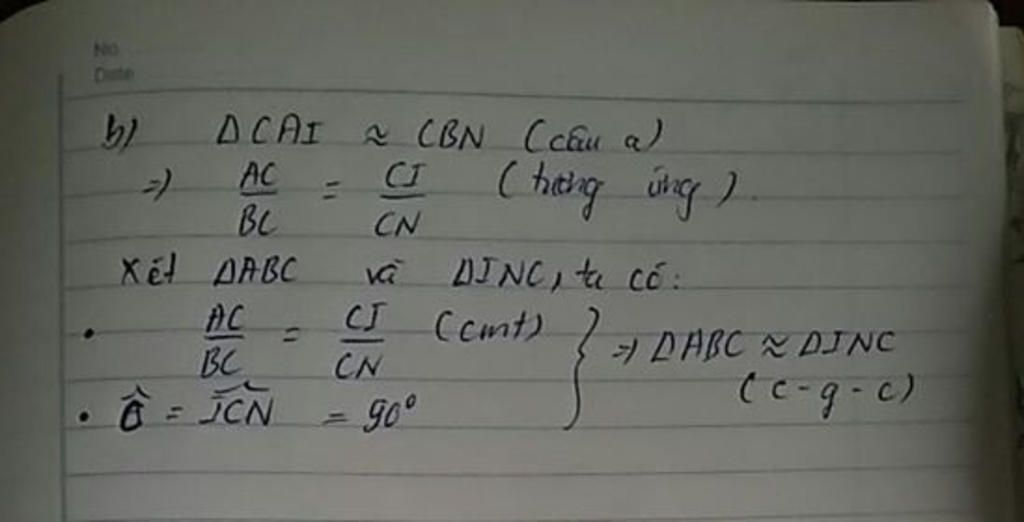 No
Date
b) ΔCAI ≈ CBN (câu a)
=) AC/BC = CI/CN (tương ứng).
Xét ΔABC và ΔINC, ta có:
• AC/BC = CI/CN (cmt) } => ΔABC ≈ ΔINC
(c-g-c)
• Ĉ = ICN = 90°